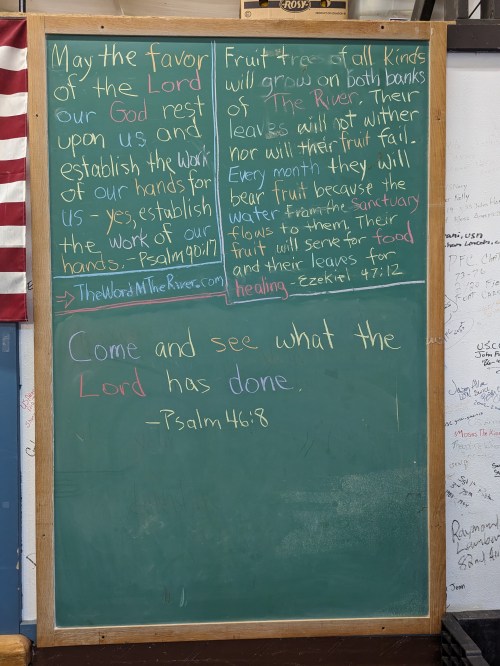 ROSY
May the favor
of the Lord
our God rest
upon us and
establish the work
of our hands for
us - yes, establish
the work of our
hands. - Psalm 90:17
→ TheWordNTheRiver.com
Fruit trees of all kinds
will grow on both banks
of The River. Their
leaves will not wither
nor will their fruit fail.
Every month they will
bear fruit because the
water from the Sanctuary
flows to them. Their
fruit will serve for food
and their leaves for
healing. - Ezekiel 47:12
Come and see what the
Lord has done.
- Psalm 46:8
Raymond
82nd